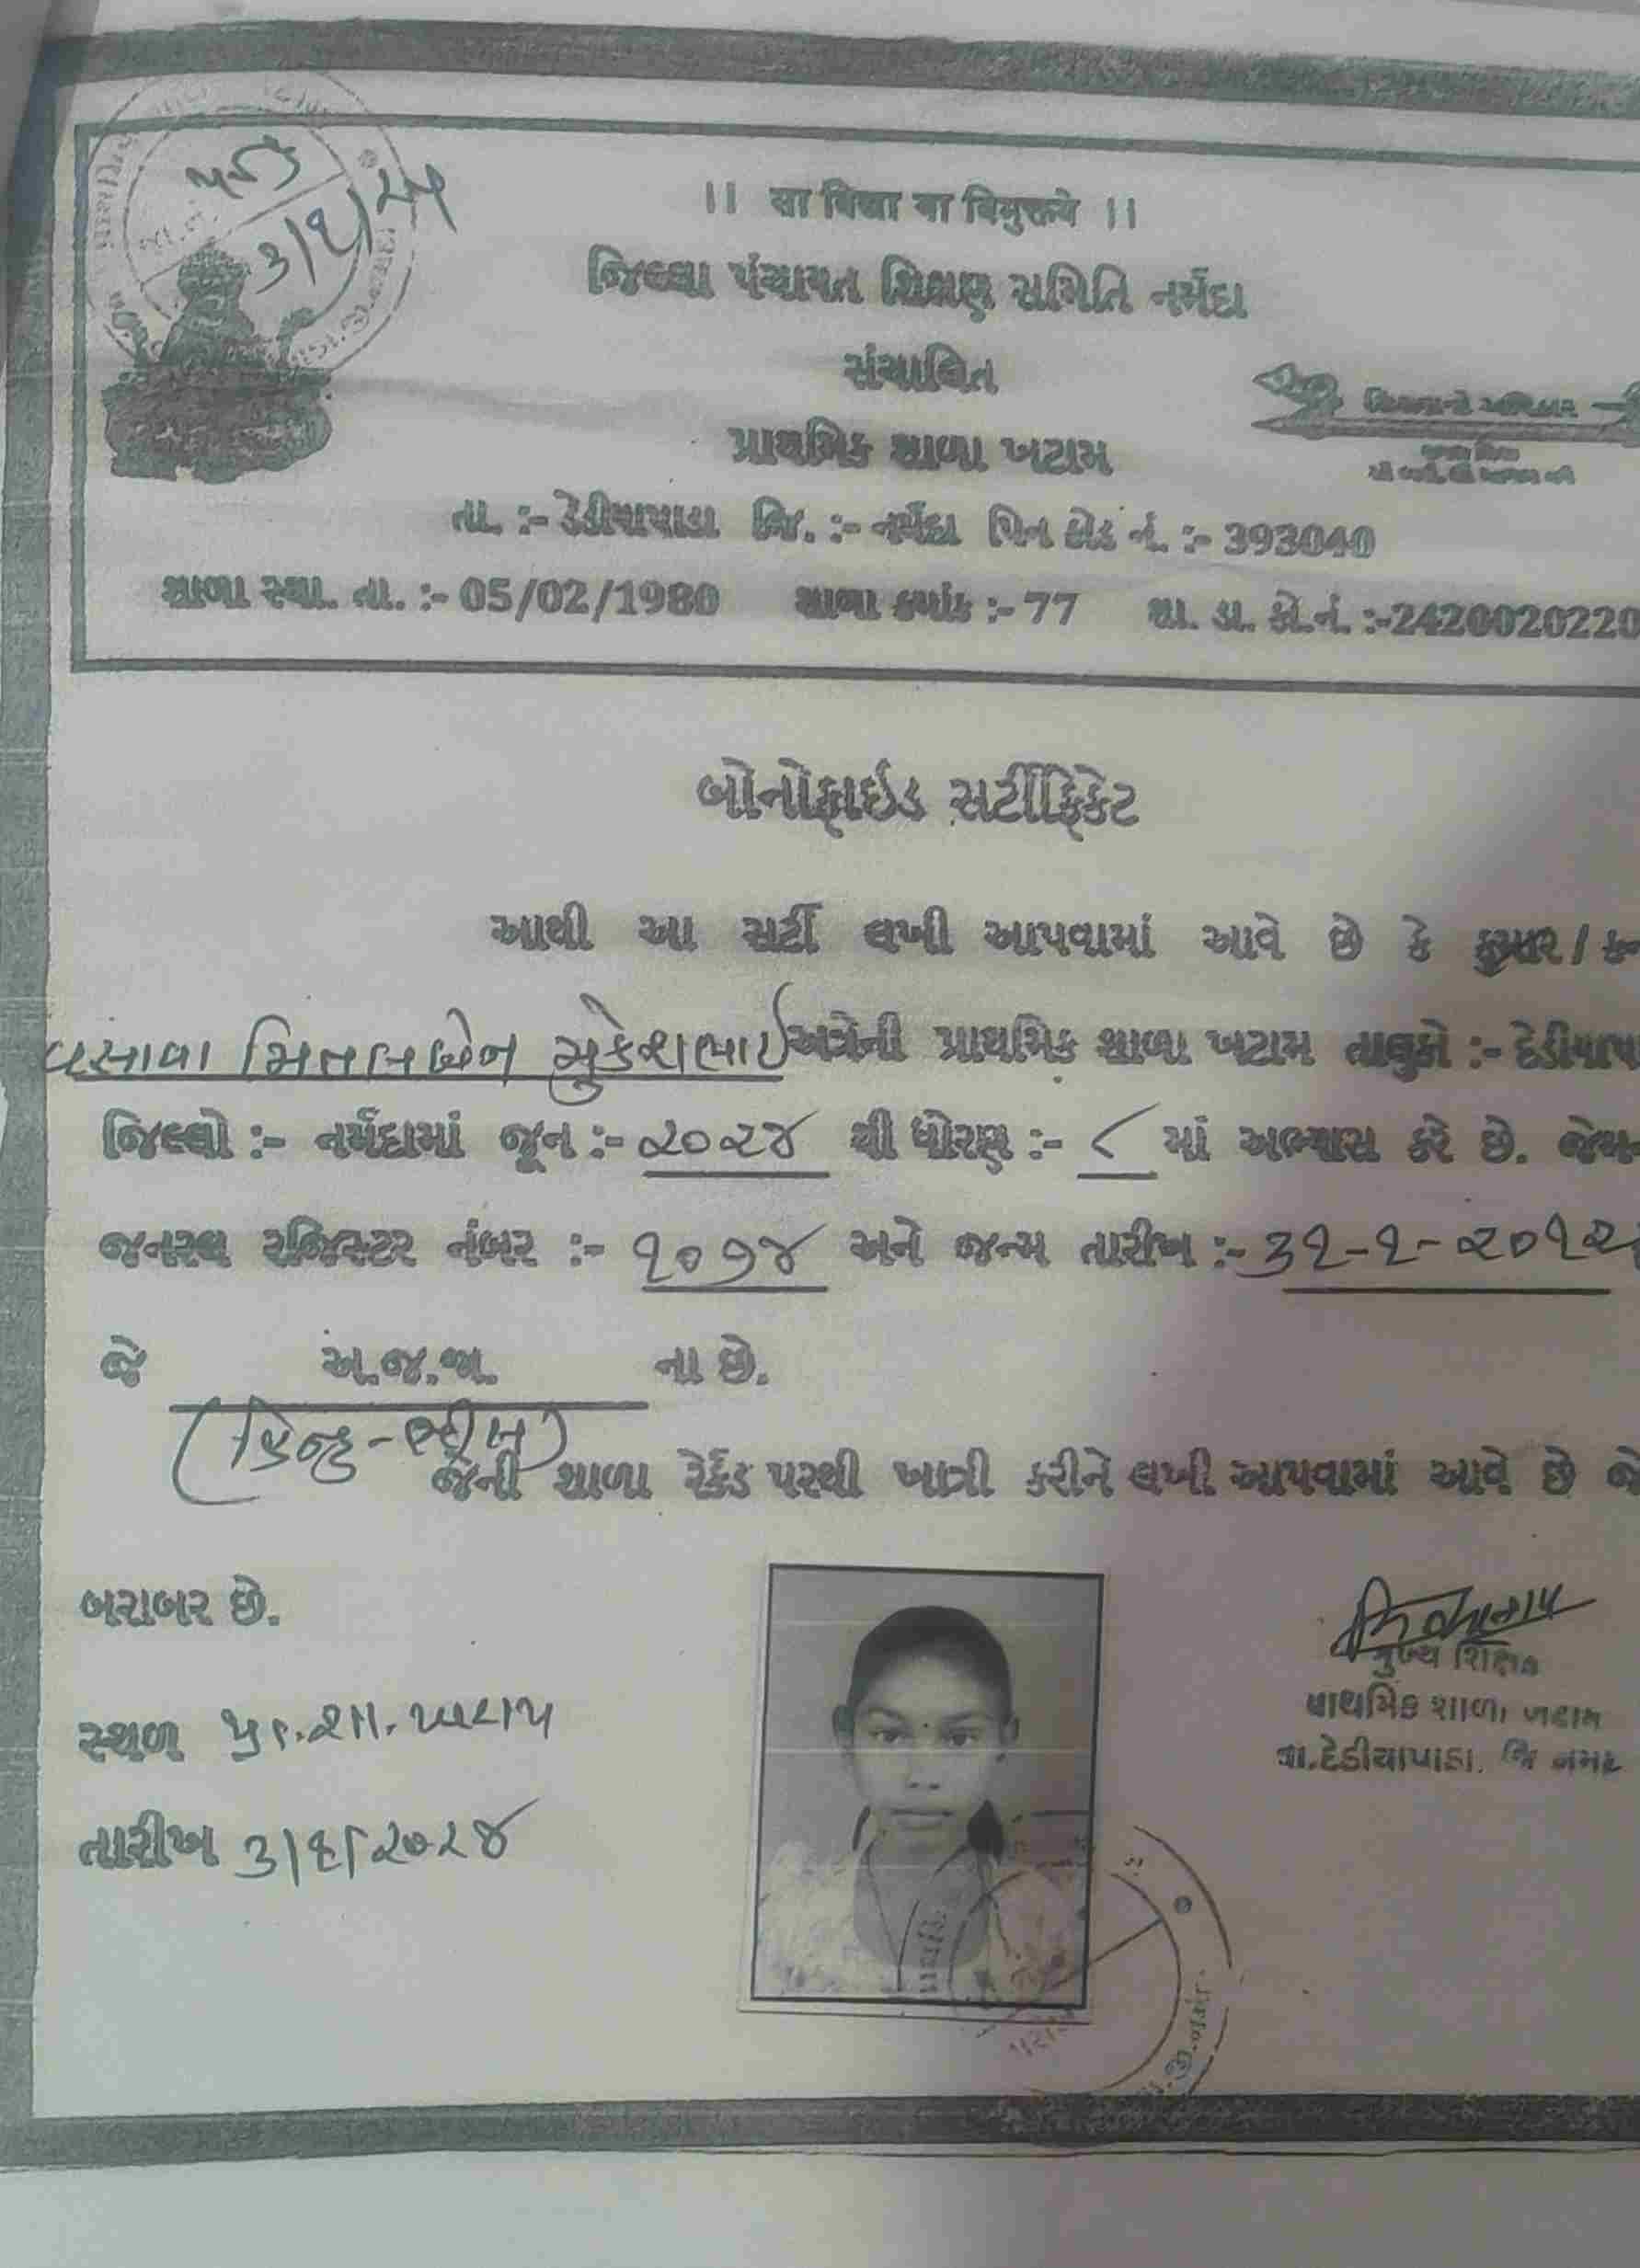 ૫૬૭
૩/૧/૨૫
|| सा विद्या या विमुक्तये ||
જિલ્લા પંચાયત શિક્ષણ સમિતિ નર્મદા
સંચાલિત
પ્રાથમિક શાળા ખટામ
તા. :- દેડીયાપાડા જિ. :- નર્મદા પિન કોડ નં. :- 393040
શાળા સ્થા. તા. :- 05/02/1980 શાળા ક્માંક :- 77 શા. ડા. કો.નં. :-2420020220
બોનોફાઇડ સર્ટીફિકેટ
આથી આ સર્ટી લખી આપવામાં આવે છે કે કુમાર /
વસાવા મિતલબેન મુકેશભાઇ અત્રેની પ્રાથમિક શાળા ખટામ તાલુકો :- દેડીયાપ
જિલ્લો :- નર્મદામાં જૂન :- ૨૦૨૪ થી ધોરણ :- ૮ માં અભ્યાસ કરે છે. જેમન
જનરલ રજિસ્ટર નંબર :- ૧૦૭૪ અને જન્મ તારીખ :- ૩૧-૧-૨૦૧૨
જે અ.જ.જા. ના છે.
(હિન્દુ-ભીલ)
જેની શાળા રેર્કડ પરથી ખાત્રી કરીને લખી આપવામાં આવે છે જે
બરાબર છે.
મુખ્ય શિક્ષક
પ્રાથમિક શાળા ખટામ
તા.દેડીયાપાડા. જિ નર્મદ
સ્થળ પ્રા.શા. ખટામ
તારીખ ૩/૬/૨૦૨૪